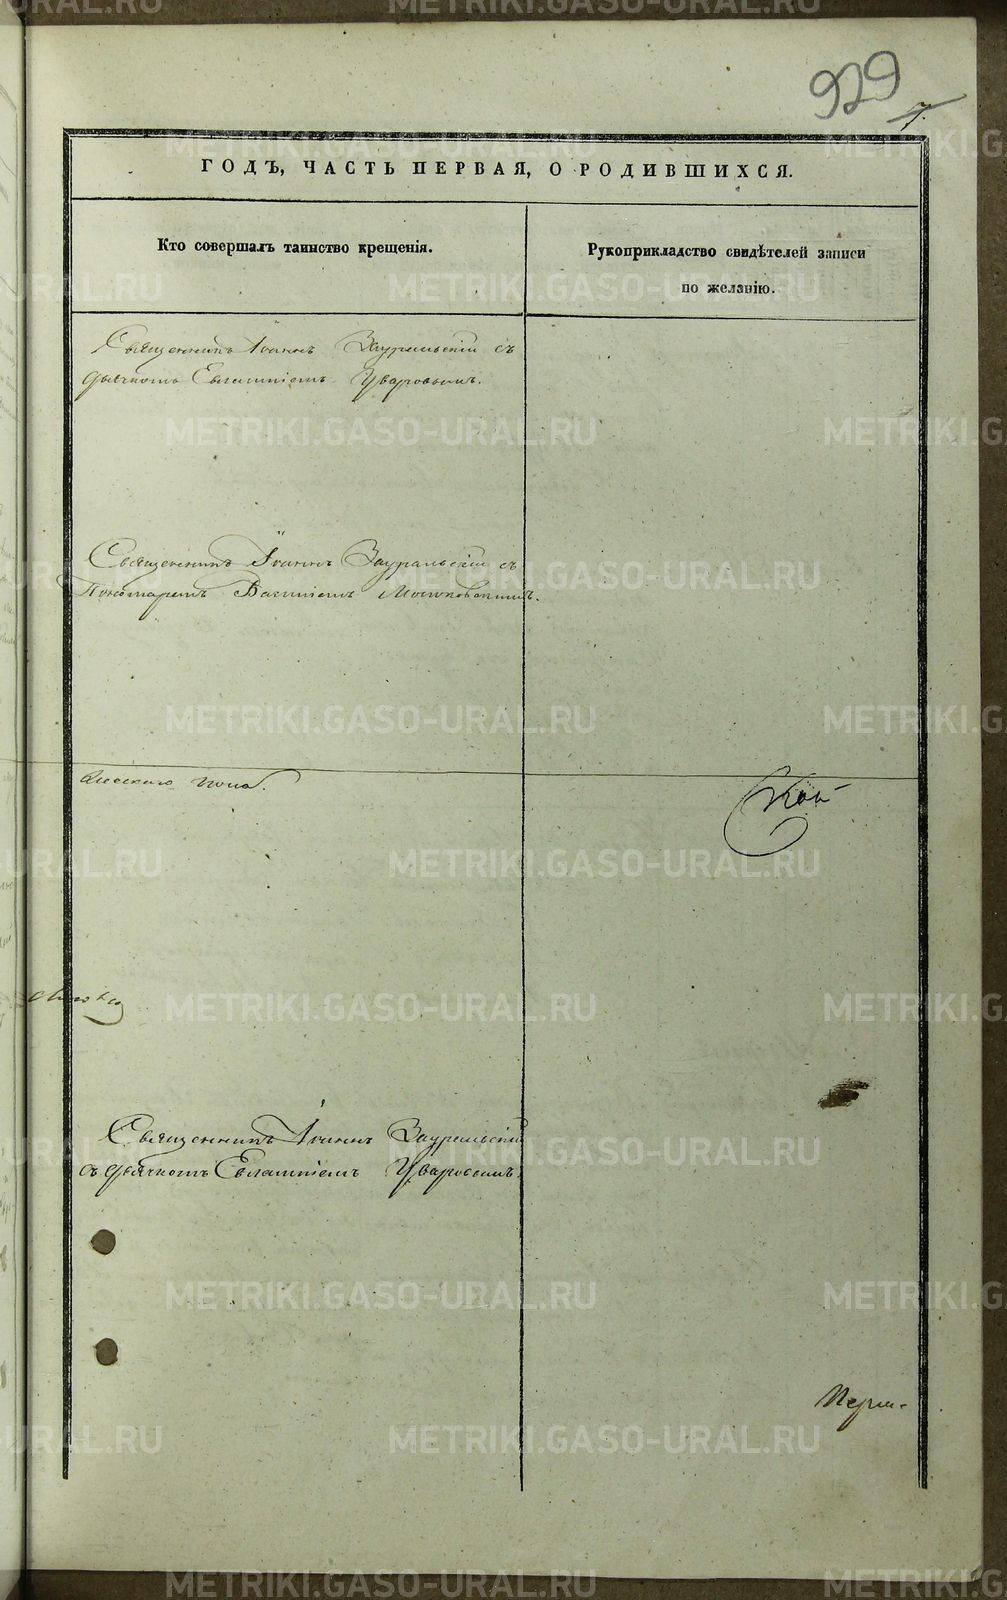 929
7.
ГОДЪ, ЧАСТЬ ПЕРВАЯ, О РОДИВШИХСЯ.
Кто совершалъ таинство крещенія.
Рукоприкладство свидѣтелей записи
по желанію.
Священникъ Іоаннъ Зауральскій съ
дьячкомъ Евлампіемъ Уваровымъ.
Священникъ Іоаннъ Зауральскій съ
Пономаремъ Василіемъ
Священникъ Іоаннъ Зауральскій
съ дьячкомъ Евлампіемъ Уваровымъ.
Перм-
METRIKI.GASO-URAL.RU